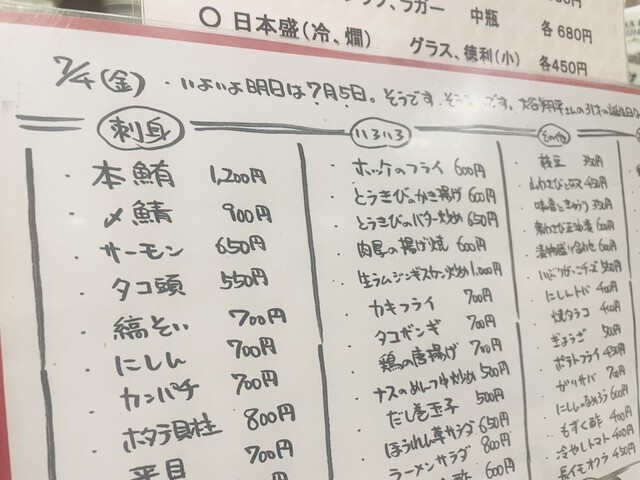 ラガー 中瓶 各680円
○ 日本盛(冷、燗) グラス、徳利(小) 各450円
7/4(金) ・いよいよ明日は7月5日。そうです、そうです。大谷翔平さんの
刺身
・本鮪 1,200円
・〆鯖 900円
・サーモン 650円
・タコ頭 550円
・縞そい 700円
・にしん 700円
・カンパチ 700円
・ホタテ貝柱 800円
・平目 700円
いろいろ
・ホッケのフライ 600円
・とうきびのかき揚げ 600円
・とうきびのバター炒め 650円
・肉厚の揚げ焼 600円
・生ラムジンギスカン炒め 1,000円
・カキフライ 700円
・タコザンギ 700円
・鶏の唐揚げ 700円
・ナスのめんつゆ炒め 500円
・だし巻玉子 500円
・ほうれん草サラダ 650円
・ラーメンサラダ 800円
酢 600円
その他
・枝豆 350円
・山わさび 450円
・味噌ときゅうり 350円
・山わさび正油漬 600円
・漬物盛り合わせ 600円
チーズ 500円
・にしんトバ 400円
・焼タラコ 400円
・ぎょうざ 500円
・ポテトフライ 450円
・ガリサバ 700円
・にしんのなめろう 600円
・もずく酢 400円
・冷やしトマト 400円
・長イモオクラ 450円